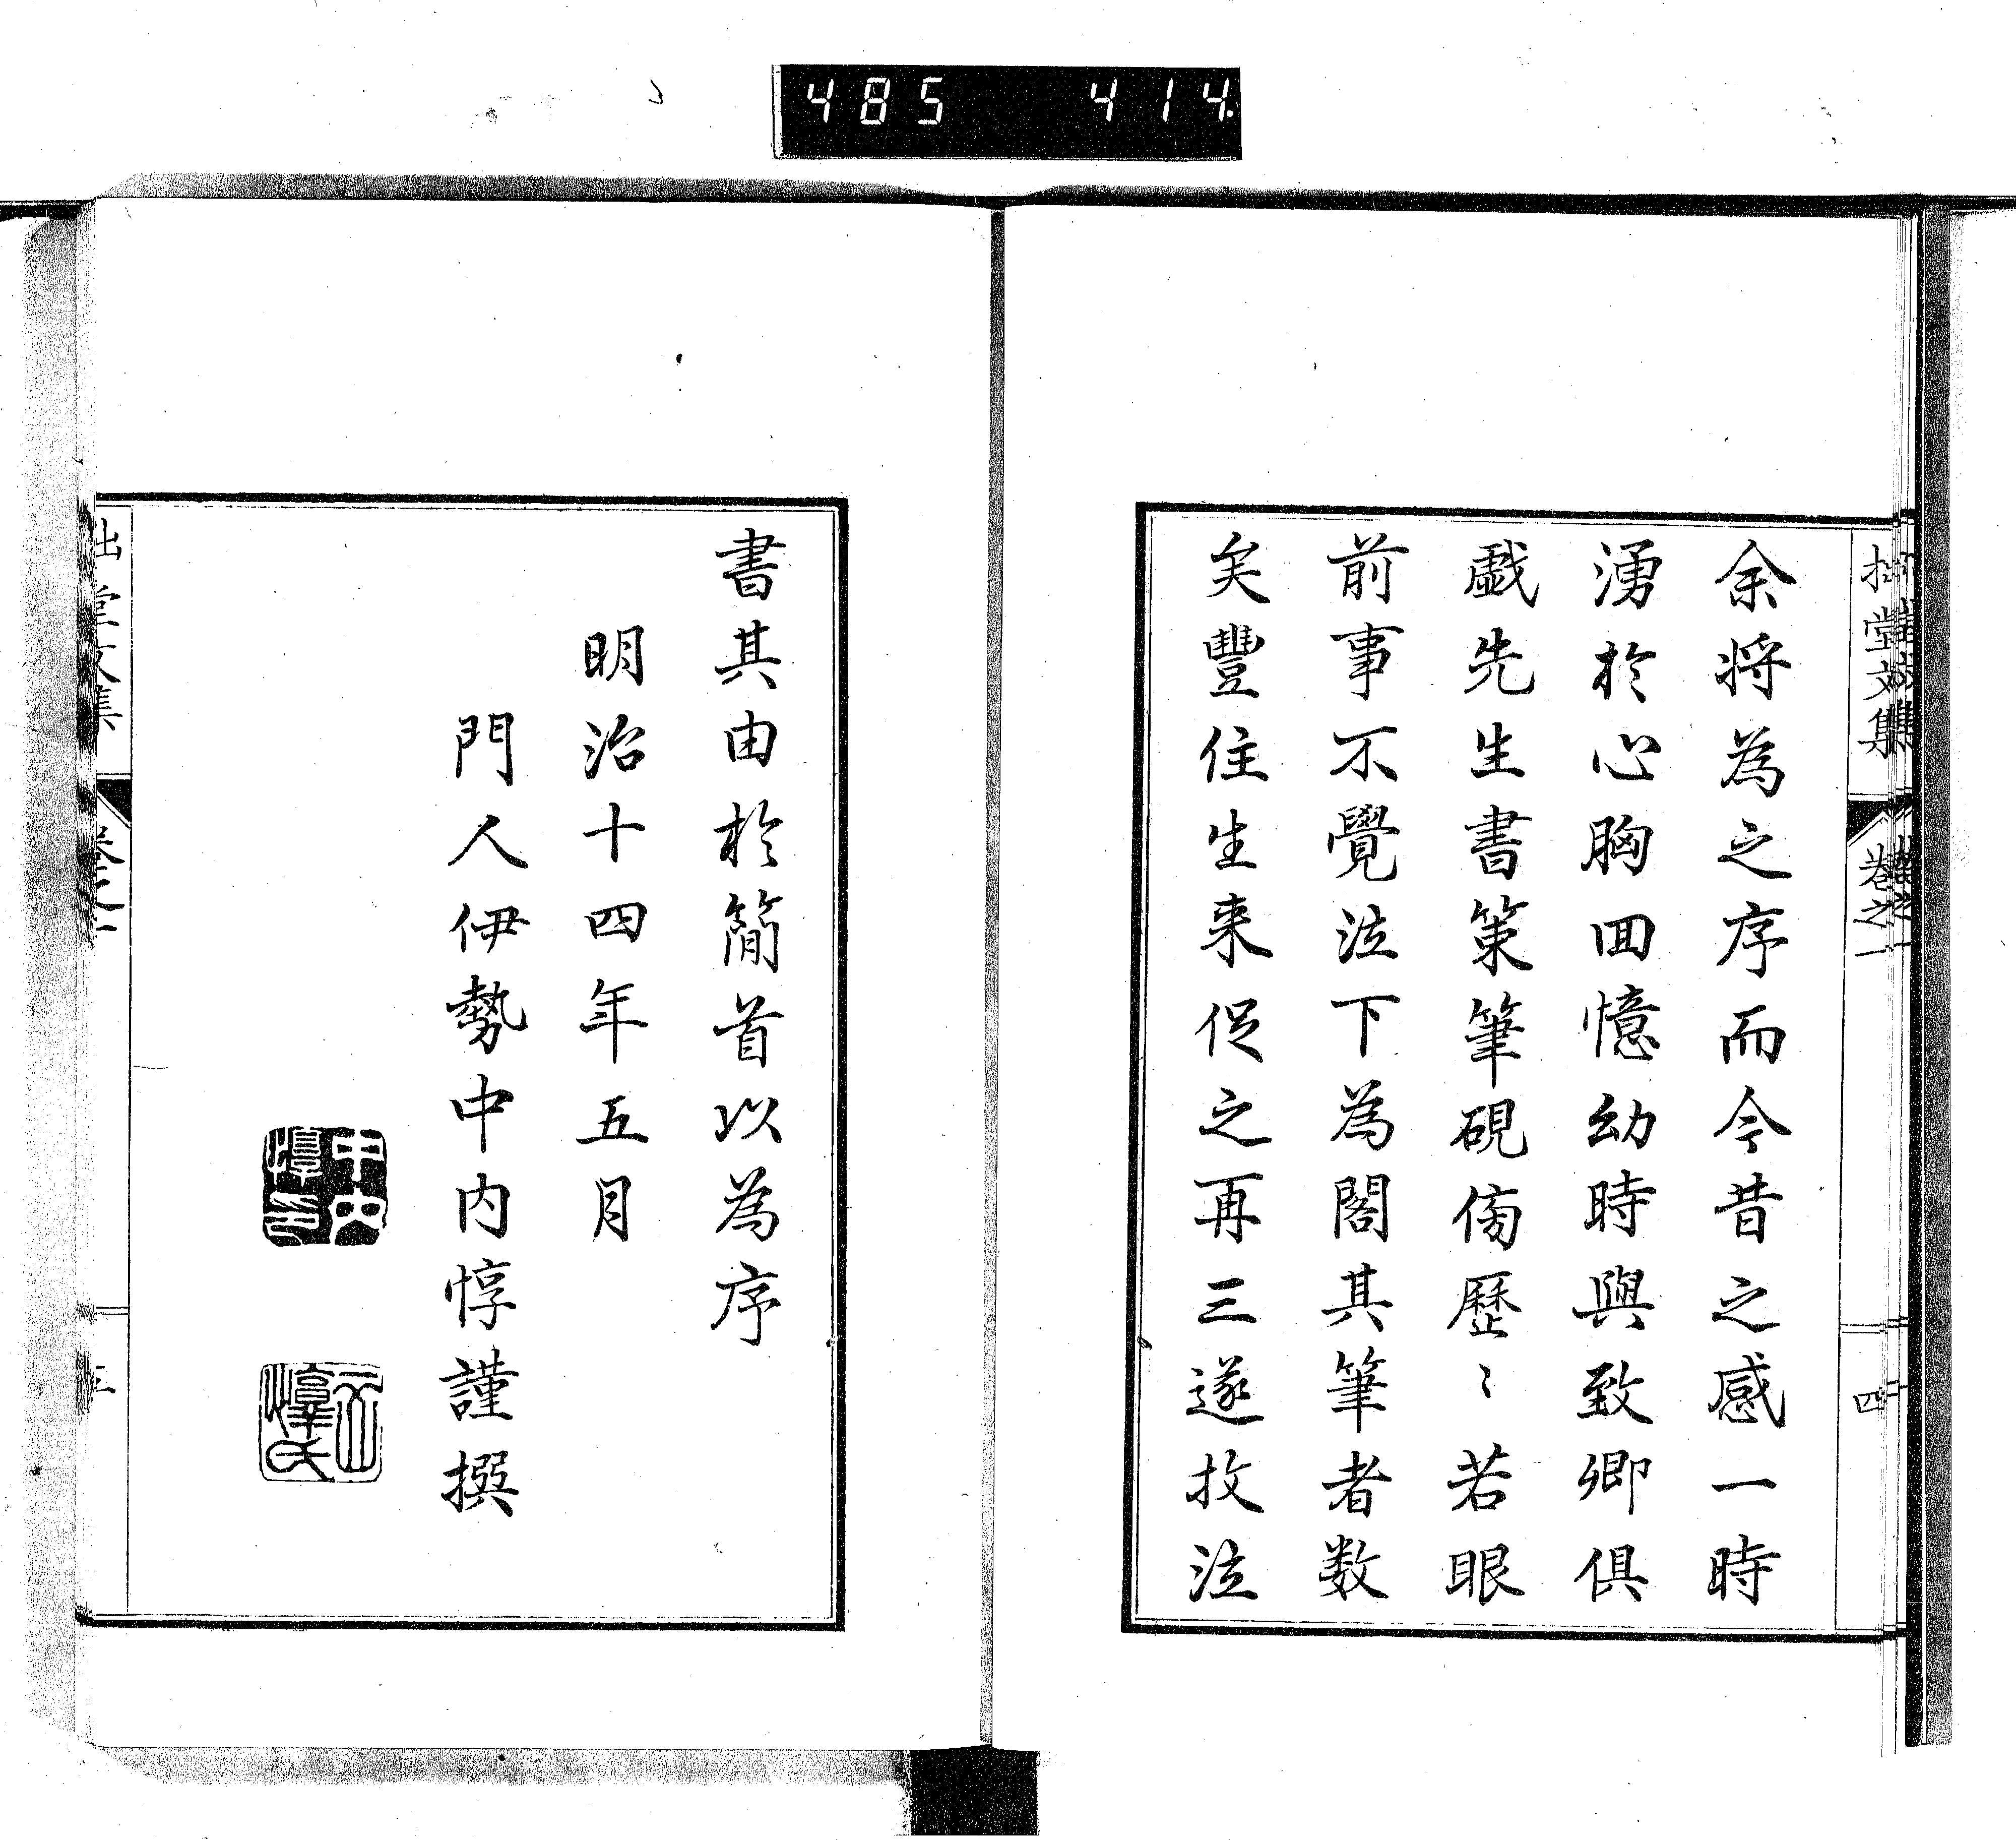 485 414
拙堂文集 卷之一 四
余将為之序而今昔之感一時
湧於心胸回憶幼時與致卿俱
戯先生書策筆硯傍歴〻若眼
前事不覺泣下為閣其筆者数
矣豐住生来促之再三遂抆泣
書其由於簡首以為序
明治十四年五月
門人伊勢中内惇謹撰
堂文集